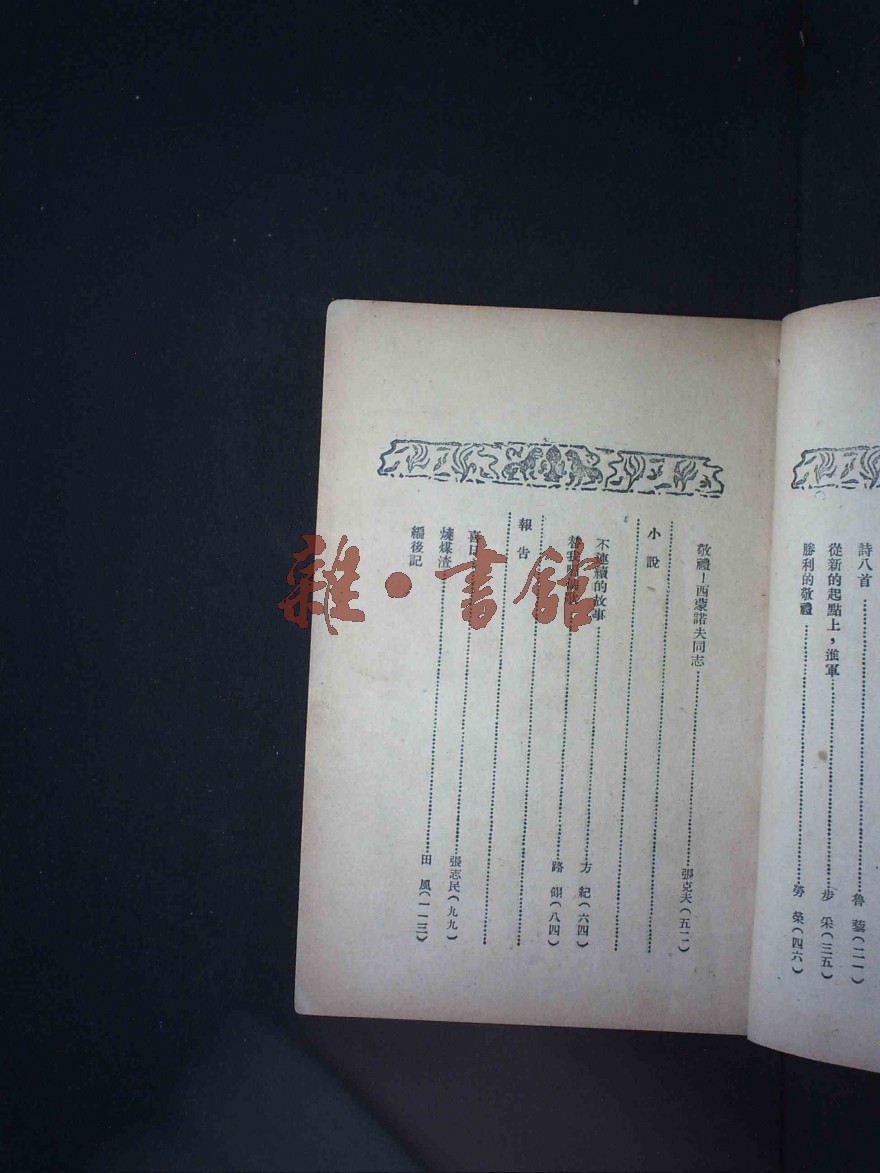 詩八首……魯 藜(二一)
從新的起點上，進軍……步 采(三五)
勝利的敬禮……勞 榮(四六)
敬禮！西蒙諾夫同志……張克夫(五二)
小 說
不連續的故事……方 紀(六四)
路 翎(八四)
報 告
喜
張志民(九九)
燒煤渣……田 風(一一三)
編後記
雜·書館